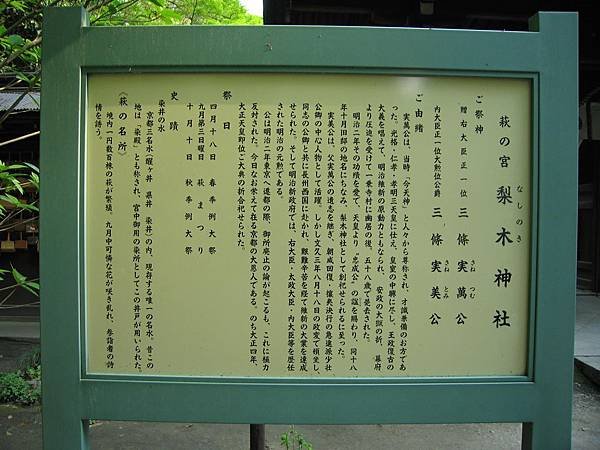 萩の宮 梨木神社
なしのき
ご祭神
贈右大臣正一位 三條実萬公
さね つむ
内大臣正一位大勲位公爵 三條実美公
さね とみ
ご由緒
実萬公は、当時、「今天神」と人々から畢称され、才識兼備のお方であ
った。光格・仁孝・孝明三天皇に仕え、皇室の中興に尽し、王政復古の
大義を唱えて、明治維新の原動力ともなられ、安政の大獄の折、幕府
より圧迫を受けて一乗寺村に幽居の後、五十八歳で薨去された。
明治二年その功績を愛で、天皇より〝忠成公〟の諡を賜わり、同十八
年十月旧邸の地名にちなみ、梨木神社として創祀せられるに至った。
実美公は、父実萬公の遺志を継ぎ、朝威回復・攘夷決行の急進派少壮
公卿の中心人物として活躍、しかし文久三年八月十八日の政変で頓坐し、
同志の公卿と共に長州西国に赴かれ、艱難辛苦を経て維新の大業を達成
せられた。そして明治新政府では、右大臣・太政大臣・内大臣等を歴任
された明治の元勲である。
公は明治二年東京へ遷都の際、御所廃止の論が起こるも、これに極力
反対された。今日なお栄えて在る京都の大恩人である。のち大正四年、
大正天皇即位ご大典の折合祀せられた。
祭日
四月十八日 春季例大祭
九月第三日曜日 萩まつり
十月十日 秋季例大祭
史蹟
染井の水
京都三名水(醒ヶ井 県井 染井)の内、現存する唯一の名水、昔この
地は、「染殿」とも称され、宮中御用の染所としてこの井戸が用いられた。
《萩の名所》
境内一円数百株の萩が繁殖、九月中可憐な花が咲き乱れ、参詣者の詩
情を誘う。